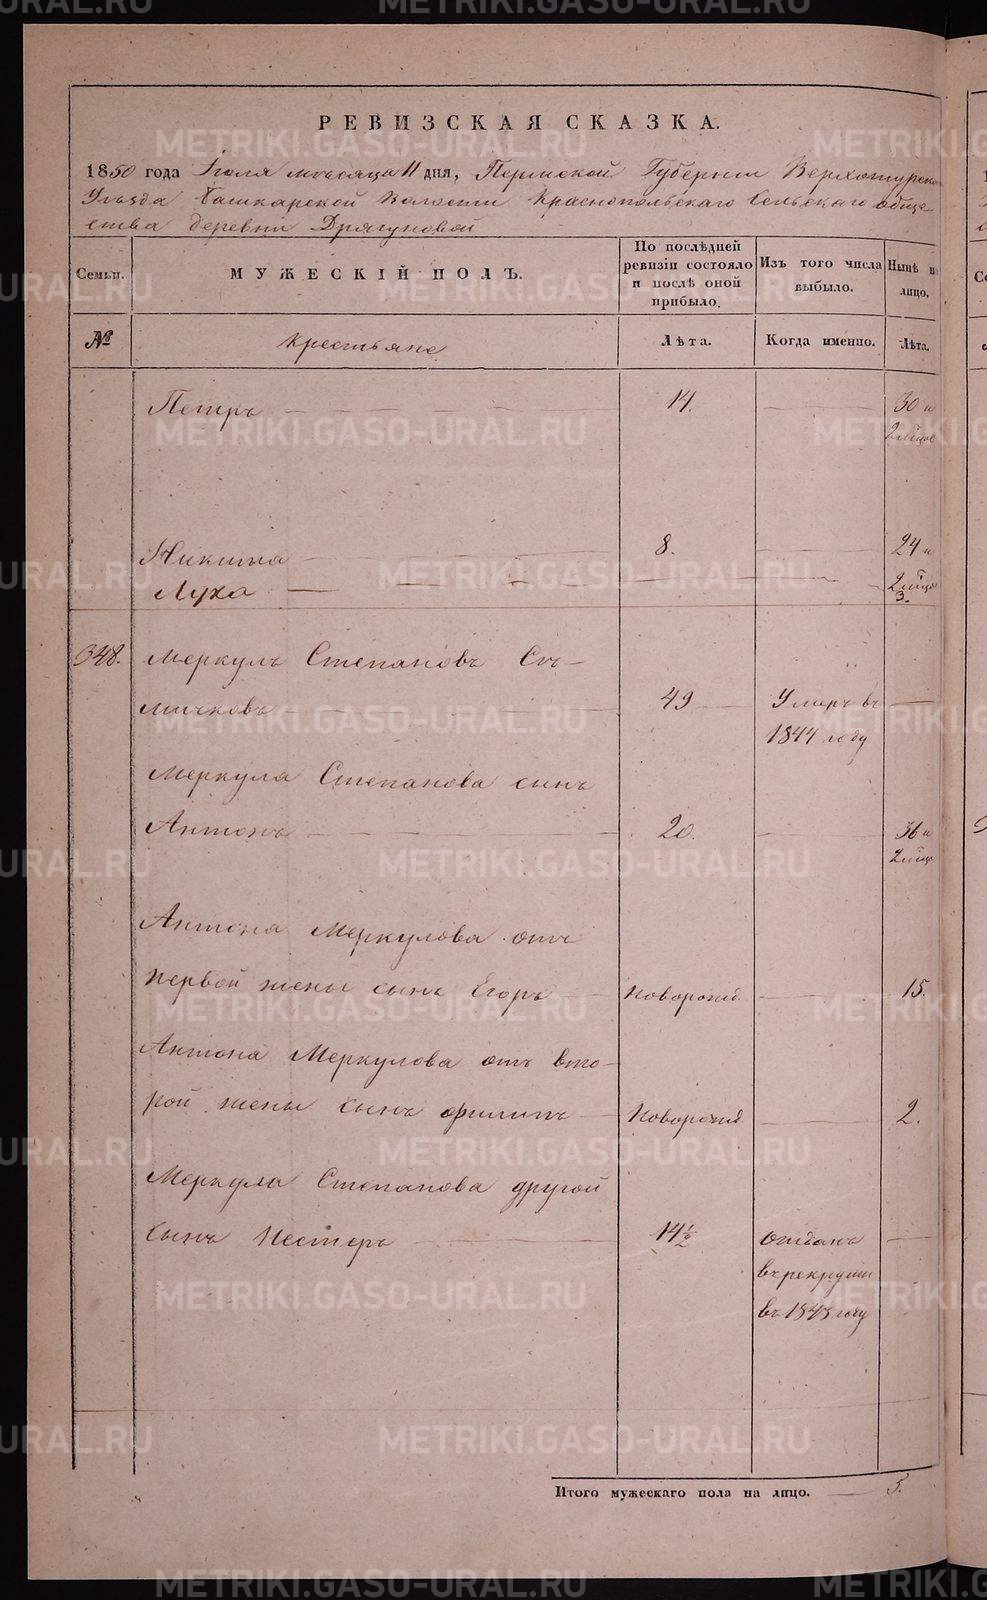 РЕВИЗСКАЯ СКАЗКА.
1850 года Іюля мѣсяца 11 дня, Пермской Губерніи Верхотурска
Уѣзда Башкарской Волости Краснопольскаго Сельскаго обще-
ства деревни Драгуновой
Семьи.
МУЖЕСКІЙ ПОЛЪ.
По послѣдней ревизіи состояло и послѣ оной прибыло.
Изъ того числа выбыло.
Нынѣ н лицо.
№
Крестьяне
Лѣта.
Когда именно.
Лѣта.
Петръ 14. 30 и
2 лицов
Никита 8. 24 и
Луха 2 лица
3.
348. Меркулъ Степановъ Съ-
мичковъ 49 Умеръ въ
1844 году
Меркула Степанова сынъ
Антонъ 20. 36 и
2 лиц
Антона Меркулова отъ
первой жены сынъ Егоръ Новорожд. 15.
Антона Меркулова отъ вто-
рой жены сынъ Филипъ Новорожд 2.
Меркула Степанова другой
сынъ Нестеръ 14½ отданъ
въ рекруты
въ 1843 году
Итого мужескаго пола на лицо. 5.
METRIKI.GASO-URAL.RU